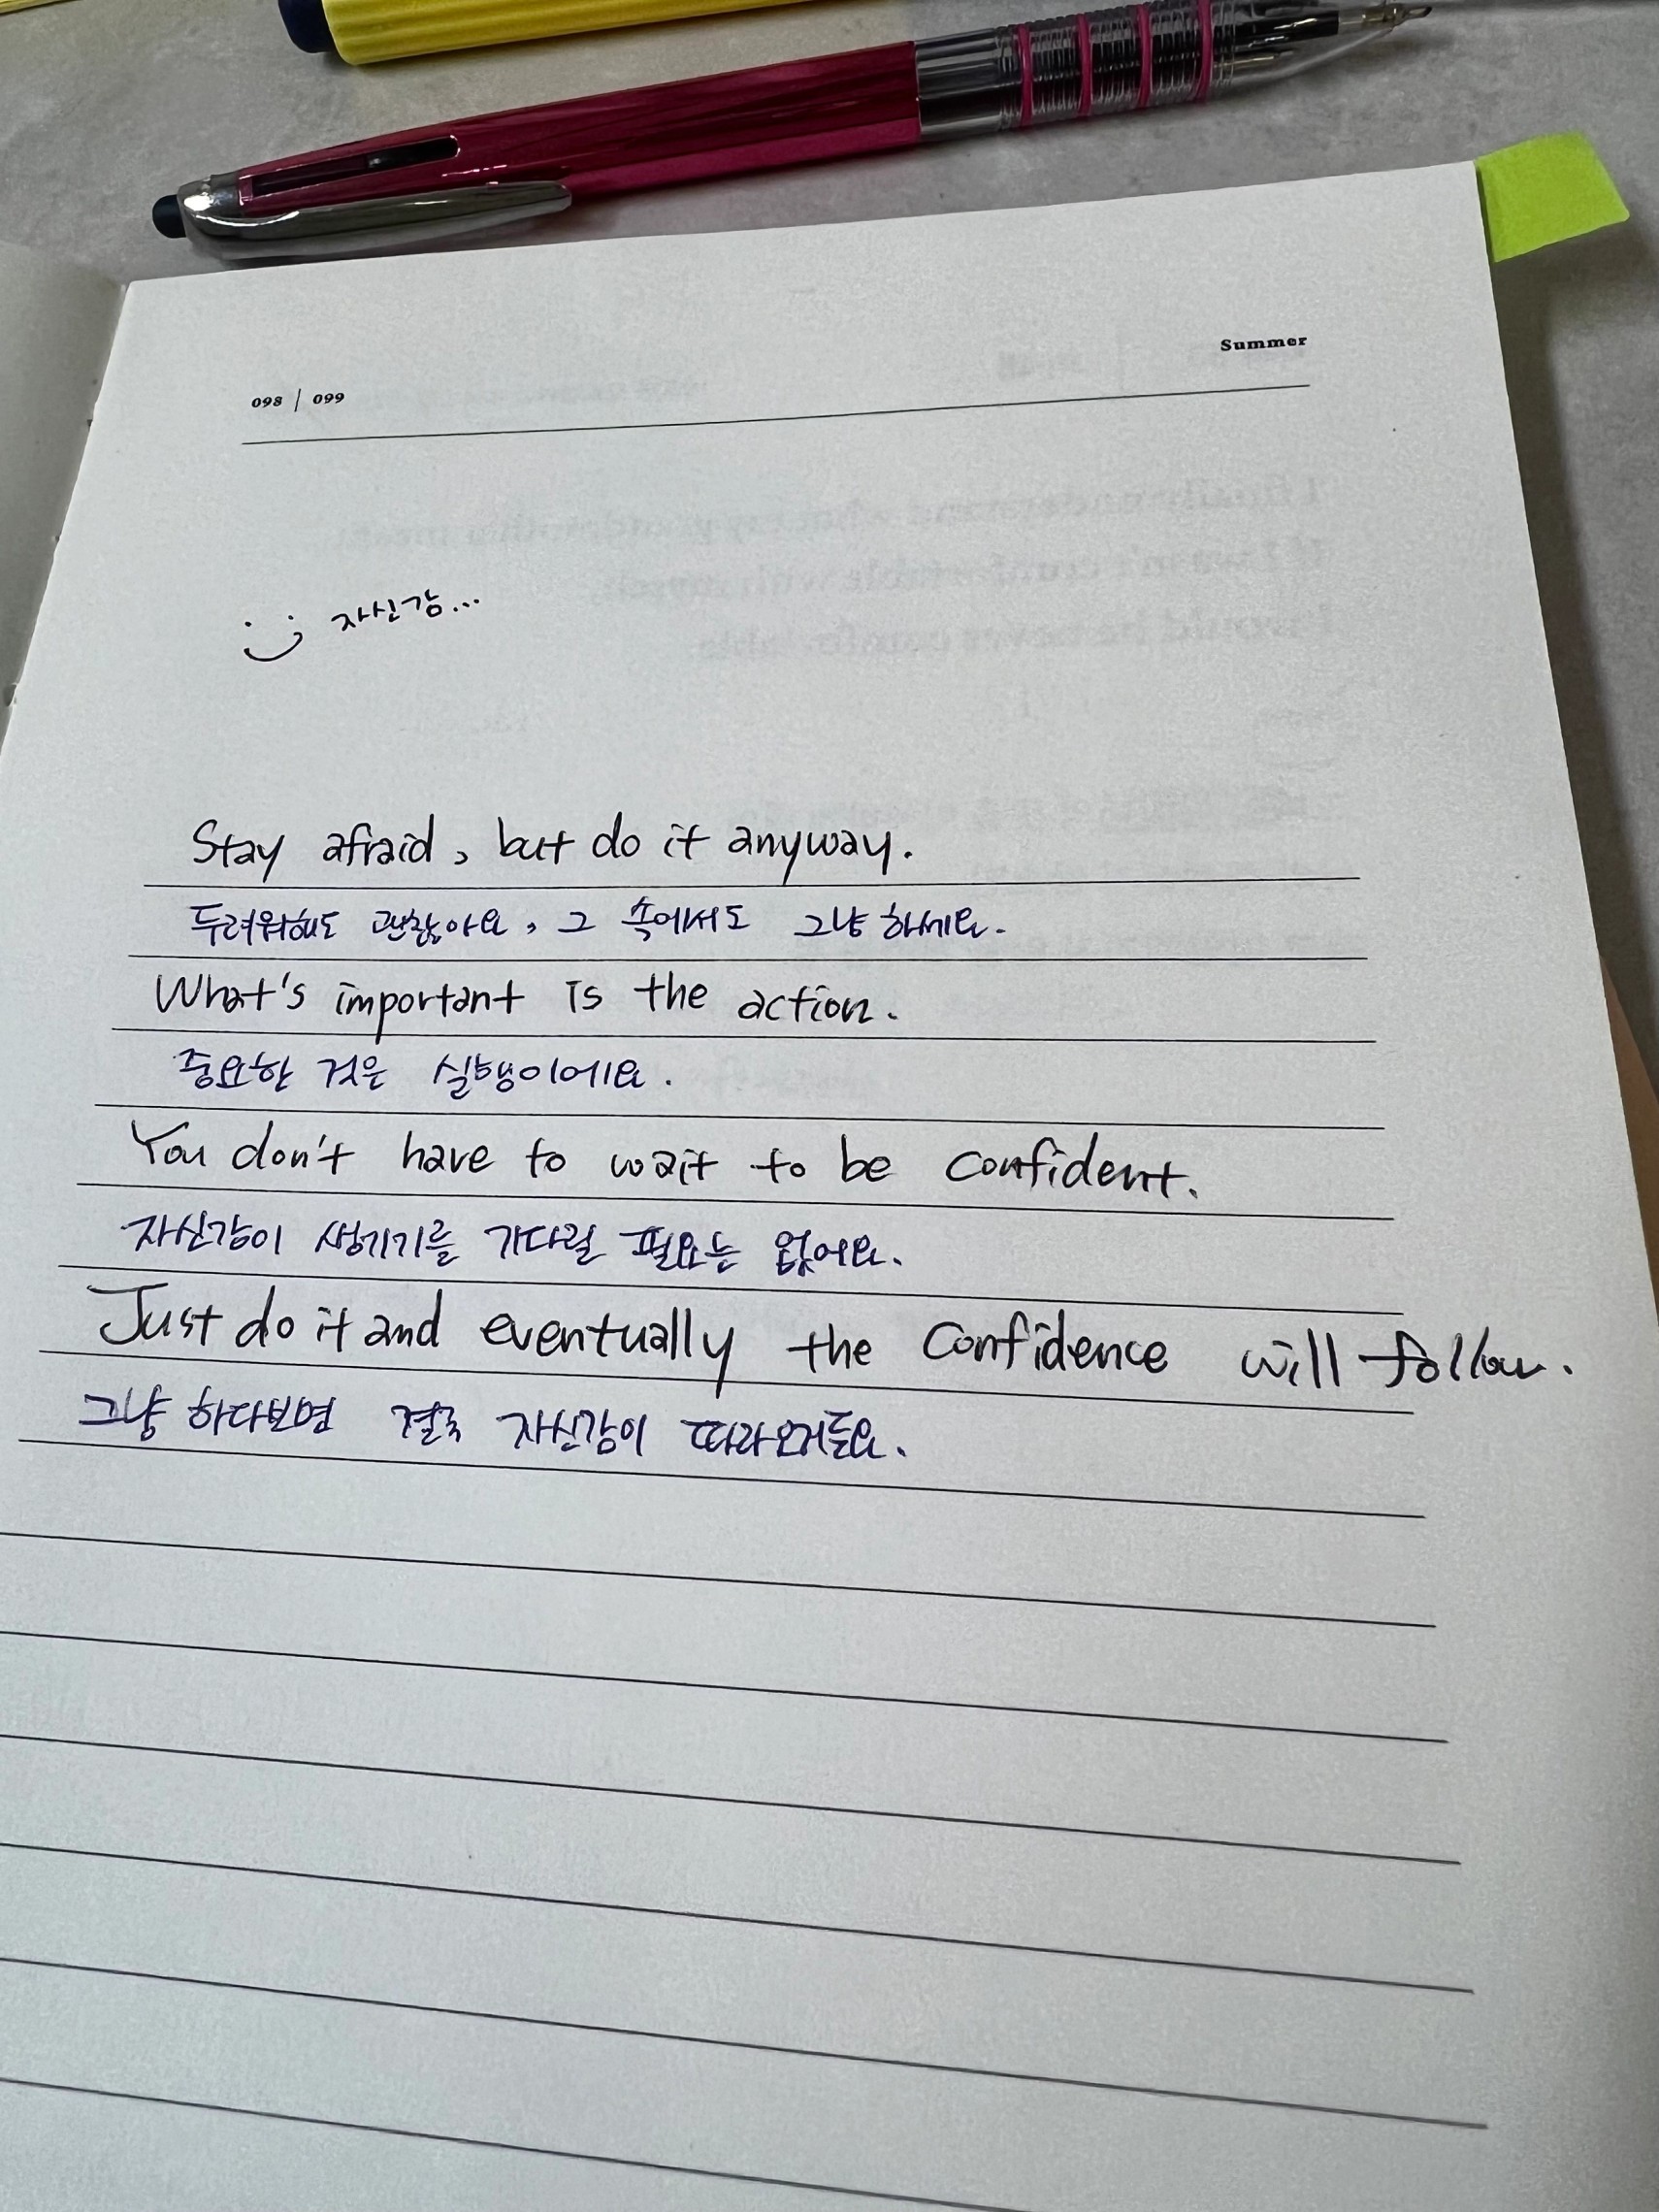 Summer
098 | 099
자신감...
Stay afraid, but do it anyway.
두려워해도 괜찮아요, 그 속에서도 그냥 하세요.
What's important is the action.
중요한 것은 실행이에요.
You don't have to wait to be confident.
자신감이 생기기를 기다릴 필요는 없어요.
Just do it and eventually the confidence will follow.
그냥 하다보면 결국 자신감이 따라오거든요.